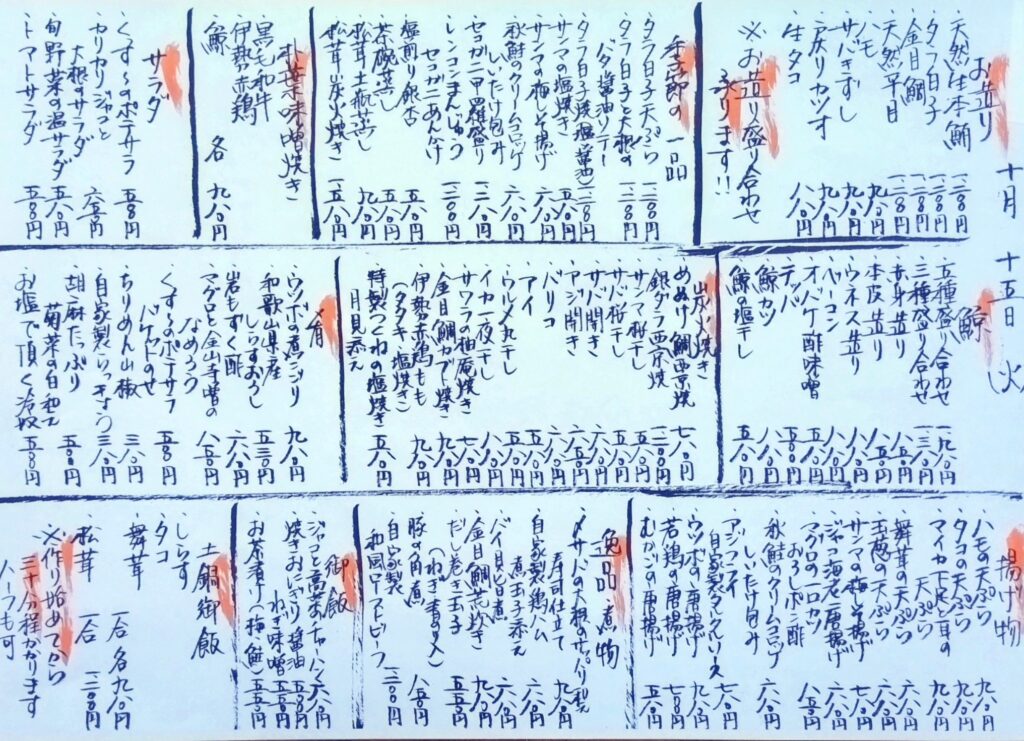 十月 十五日 火
お造り
・天然生本鮪 一二八〇円
・タラ白子 一二八〇円
・金目鯛 一二八〇円
・天然平目 一二八〇円
・ハモ 九八〇円
・サバきずし 九八〇円
・戻りカツオ 九八〇円
・生タコ 八八〇円
※お造り盛り合わせ
承ります!!
季節の一品
・タラ白子天ぷら 一三八〇円
・タラ白子と大根の
バタ醤油ソテー 一三八〇円
・タラ白子焼(塩・醤油) 一二八〇円
・サンマの塩焼き
・サンマの梅しそ揚げ
・秋鮭のクリームコロッケ
しいたけ包み 六八〇円
・セコガニ甲羅盛り
・レンコンまんじゅう
セコガニあんかけ
・塩煎り銀杏 五八〇円
・茶碗蒸し 五八〇円
・松茸土瓶蒸し 九八〇円
・松茸炭火焼き 一五八〇円
朴葉味噌焼き
黒毛和牛
伊勢赤鶏
鯨 各 九八〇円
サラダ
・くすくすのポテサラ 五八〇円
・カリカリジャコと
大根のサラダ 六八〇円
・旬野菜の温サラダ 五八〇円
・トマトサラダ 五八〇円
鯨
・五種盛り合わせ 一九八〇円
・三種盛り合わせ 一三八〇円
・赤身造り 八八〇円
・本皮造り 五八〇円
・ウネス造り 八八〇円
・ベーコン 八八〇円
・オバケ酢味噌 五八〇円
・テッパ
・鯨カツ
・鯨の塩干し 五八〇円
炭火焼き
・めぬけ鯛西京焼 七八〇円
・銀ダラ西京焼 一二八〇円
・サンマ桜干し 五八〇円
・サバ桜干し 五八〇円
・サバ開き 六八〇円
・アジ開き
・バリコ
・アイ
・ウルメ丸干し
・イカ一夜干し
・サワラの柚庵焼き
・金目鯛カブト焼き
・伊勢赤鶏もも
(タタキ・塩焼き) 九八〇円
・特製つくねの塩焼き
月見添え 五八〇円
肴
・ウツボの煮こごり 九八〇円
・和歌山県産
しらすおろし 五三〇円
・岩もずく酢 六八〇円
・マグロと金山寺味噌の
なめろう 八五〇円
・くすくすのポテサラ
バケットのせ 五八〇円
・ちりめん山椒 三八〇円
・自家製らっきょう 三八〇円
・胡麻たっぷり
菊菜の白和え 五八〇円
・お塩で頂く冷奴 五八〇円
揚げ物
・ハモの天ぷら 九八〇円
・タコの天ぷら 九八〇円
・マイカ下足と耳の
天ぷら 六八〇円
・舞茸の天ぷら 六八〇円
・玉葱の天ぷら
・サンマの梅しそ揚げ
・ジャコ海老唐揚げ
おろしポン酢
・マグロの一口カツ 八五〇円
・秋鮭のクリームコロッケ
しいたけ包み 六八〇円
・アジフライ
自家製タルタルソース 七八〇円
・ウツボの唐揚げ
・若鶏の唐揚げ 七八〇円
・むかごの唐揚げ 五八〇円
逸品・煮物
・〆サバと大根のサッパリ和え
寿司仕立て 九八〇円
・自家製鶏ハム
煮玉子添え 六八〇円
・バイ貝旨煮 六八〇円
・金目鯛荒炊き 九八〇円
・だし巻き玉子
(ねぎ・青のり入) 五五〇円
・豚の角煮 八五〇円
・自家製
和風ローストビーフ 一二八〇円
御飯
・ジャコと高菜のチャーハン 六八〇円
・焼きおにぎり 醤油
ねぎ味噌
・お茶漬け(梅・鮭) 五五〇円
土鍋御飯
・しらす
・タコ
・舞茸 一合 各九八〇円
・松茸 一合 一二八〇円
※作り始めてから
三十分程かかります
ハーフも可